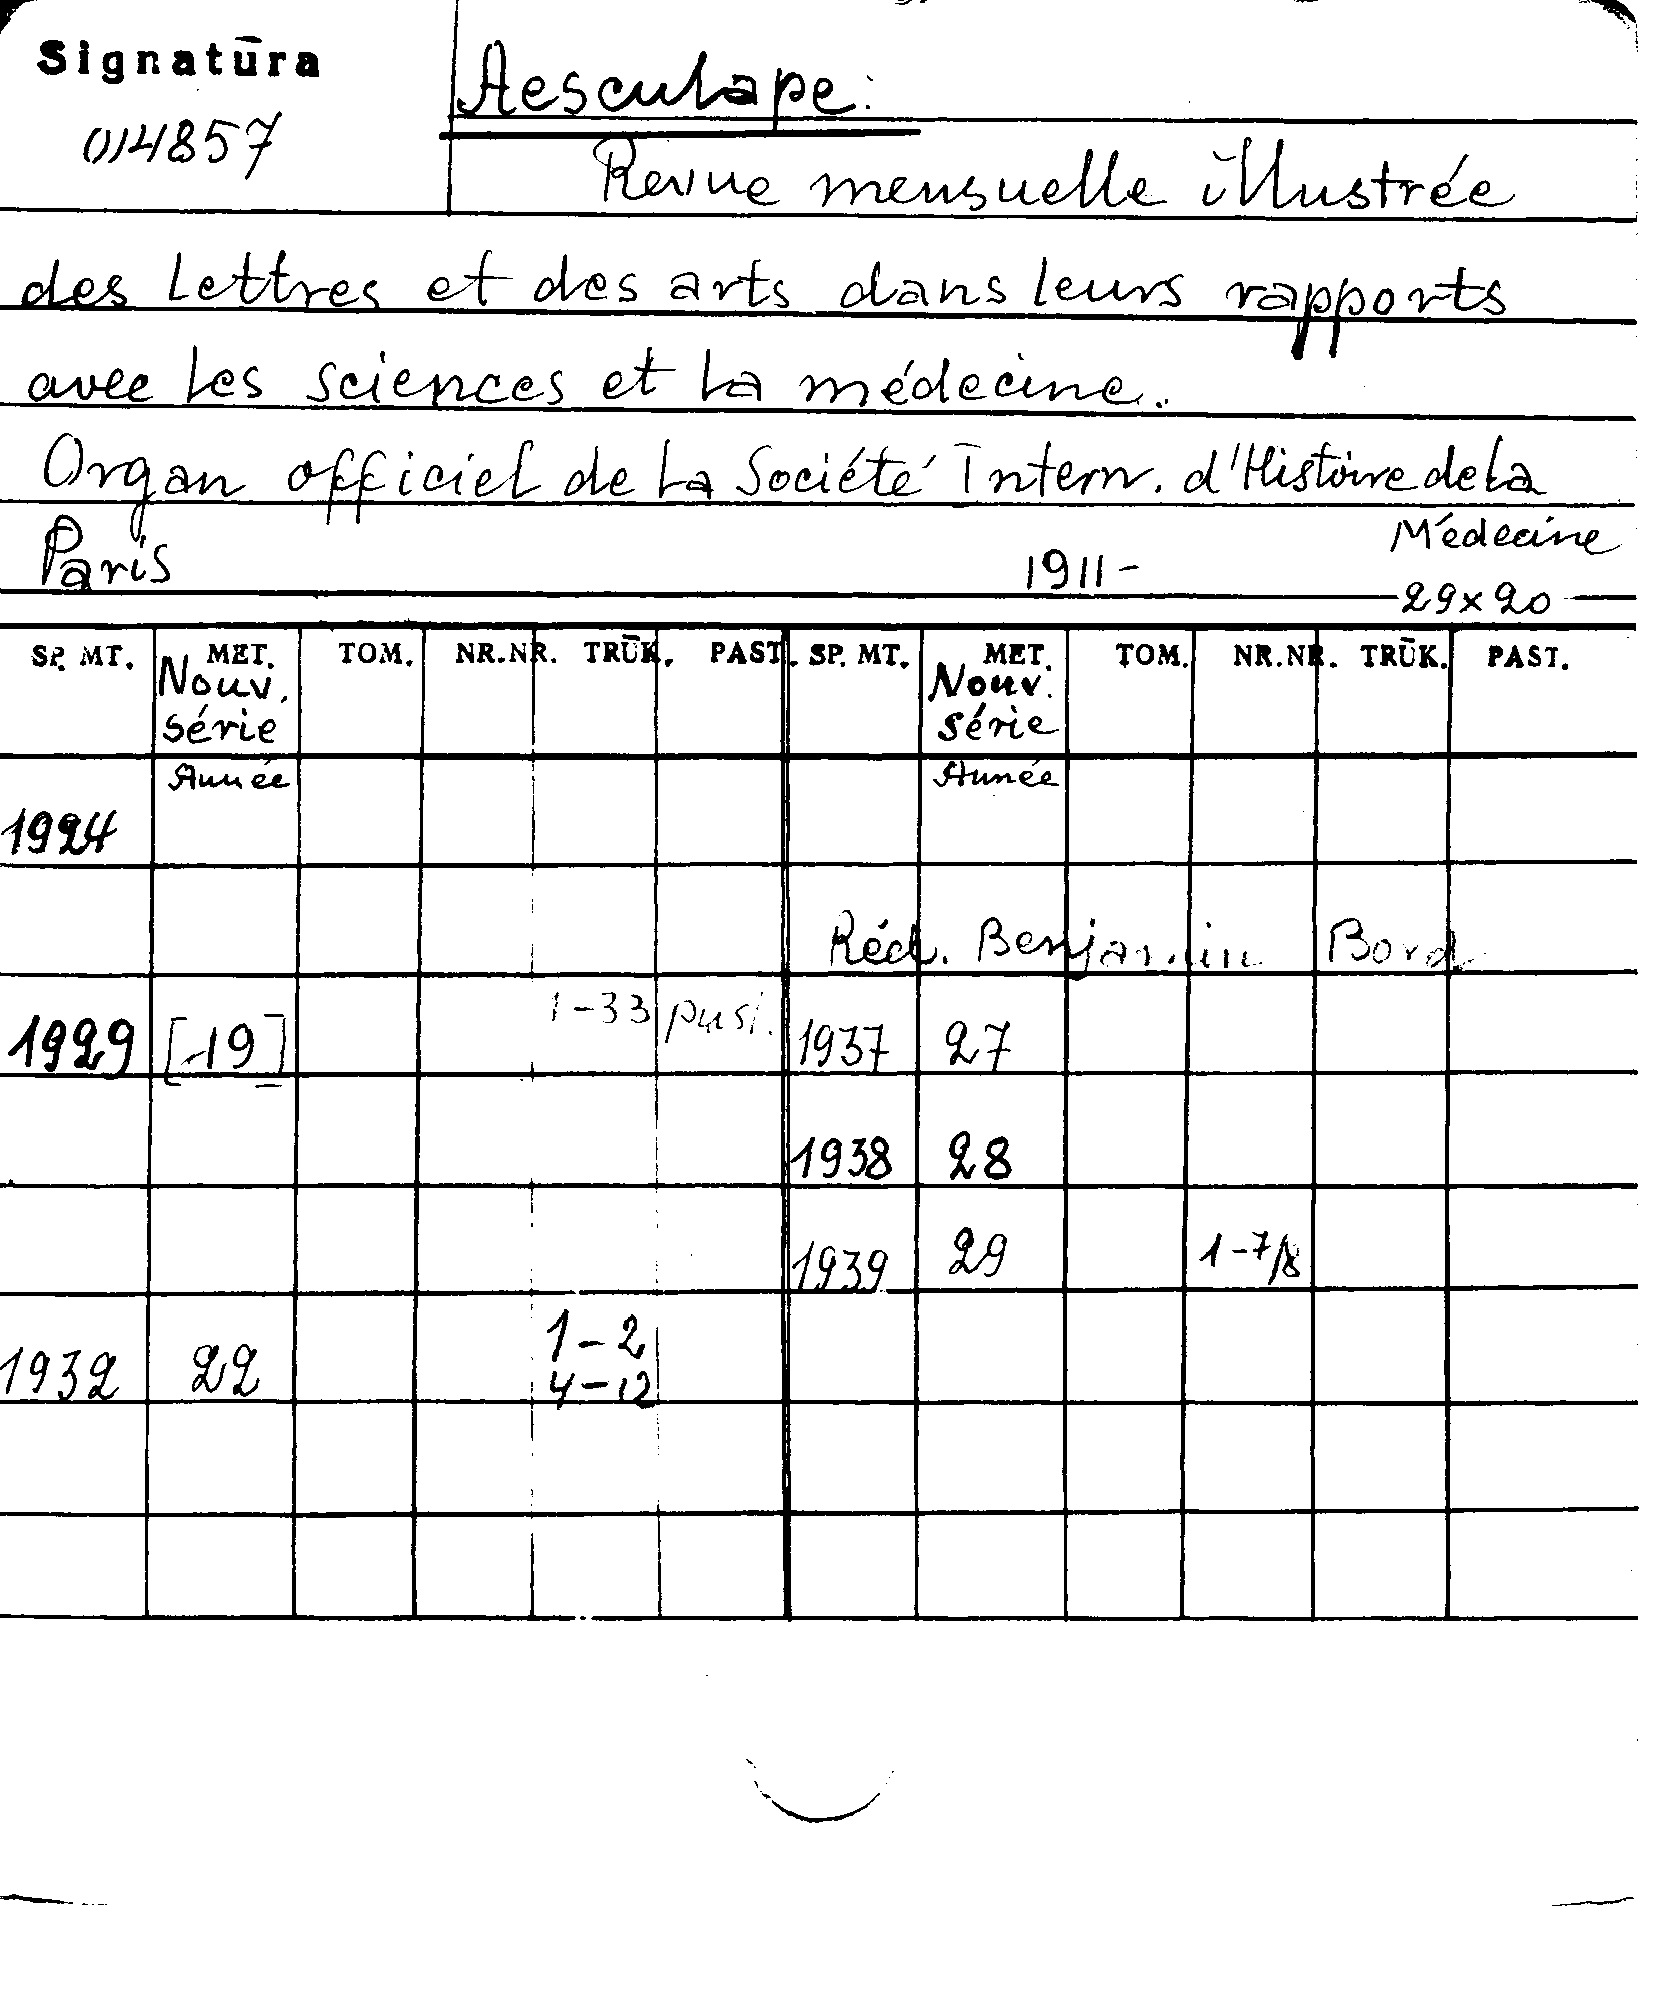 Signatūra
014857
Aesculape:
Revue mensuelle illustrée
des Lettres et des arts dans leurs rapports
avec les sciences et la médecine.
Organ officiel de la Société Intern. d'Histoire de la
Médecine
Paris 1911-
29x20
SP. MT. MET. TOM. NR.NR. TRŪK. PAST. SP. MT. MET. TOM. NR.NR. TRŪK. PAST.
Nouv. Nouv.
série série
Année Année
1924
Réd. Benjamin Bord
1-33 pusl.
1929 [-19] 1937 27
1938 28
1939 29 1-7/8
1-2
1932 22 4-12